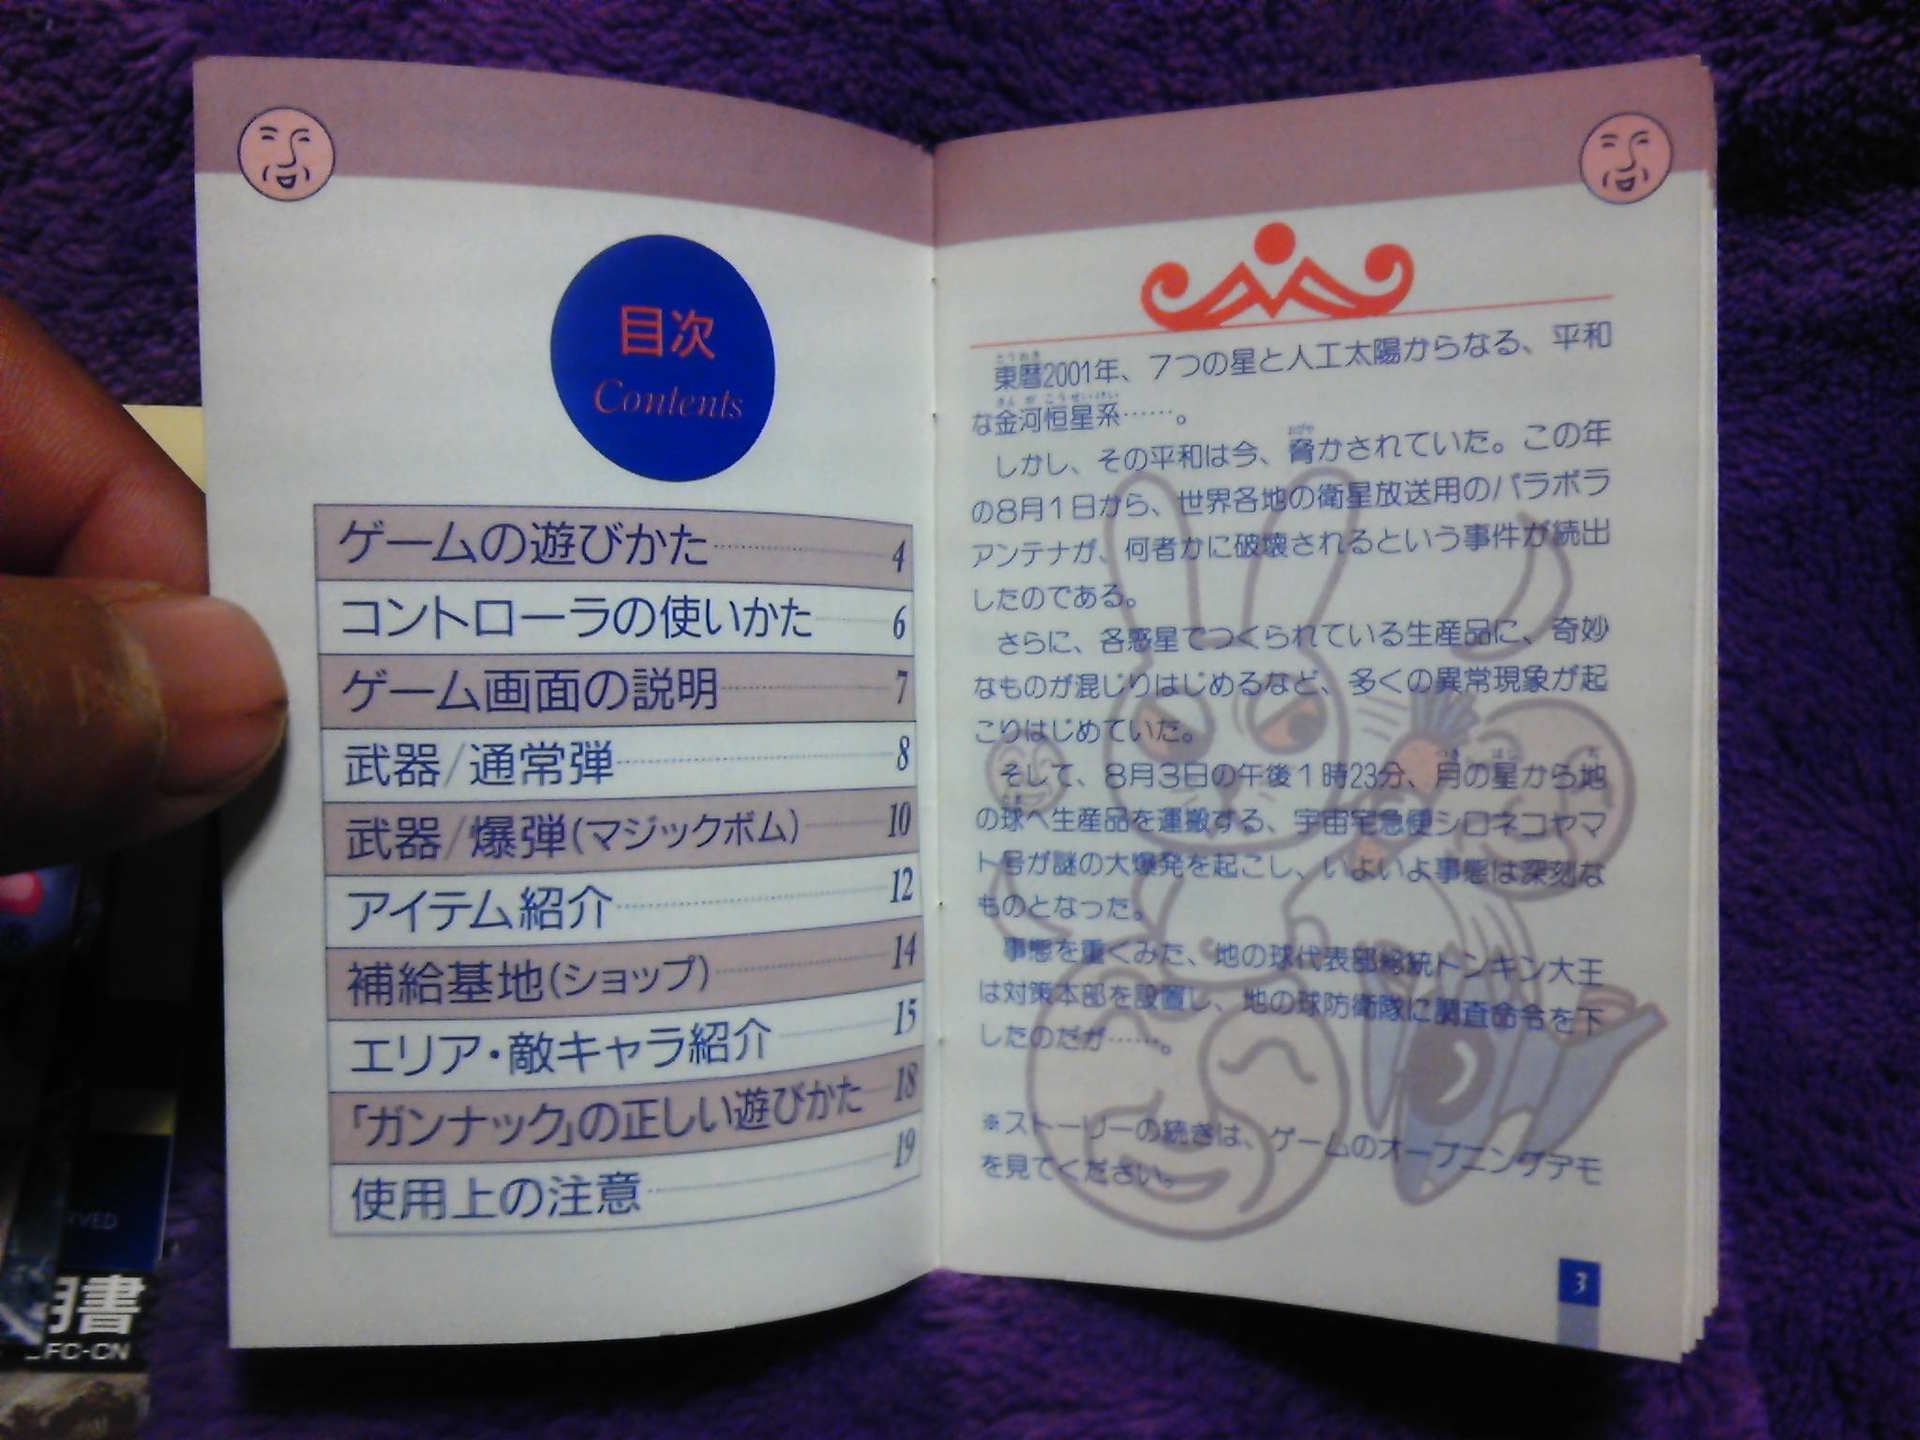 目次
Contents
ゲームの遊びかた 4
コントローラの使いかた 6
ゲーム画面の説明 7
武器/通常弾 8
武器/爆弾(マジックボム) 10
アイテム紹介 12
補給基地(ショップ) 14
エリア・敵キャラ紹介 15
「ガンナック」の正しい遊びかた 18
使用上の注意 19
東暦2001年、7つの星と人工太陽からなる、平和
な金河恒星系……。
しかし、その平和は今、脅かされていた。この年
の8月1日から、世界各地の衛星放送用のパラボラ
アンテナが、何者かに破壊されるという事件が続出
したのである。
さらに、各惑星でつくられている生産品に、奇妙
なものが混じりはじめるなど、多くの異常現象が起
こりはじめていた。
そして、8月3日の午後1時23分、月の星から地
の球へ生産品を運搬する、宇宙宅急便シロネコヤマ
ト号が謎の大爆発を起こし、いよいよ事態は深刻な
ものとなった。
事態を重くみた、地の球代表部総統トンキン大王
は対策本部を設置し、地の球防衛隊に調査命令を下
したのだが……。
※ストーリーの続きは、ゲームのオープニングデモ
を見てください。
3
RVED
書
FC-CN